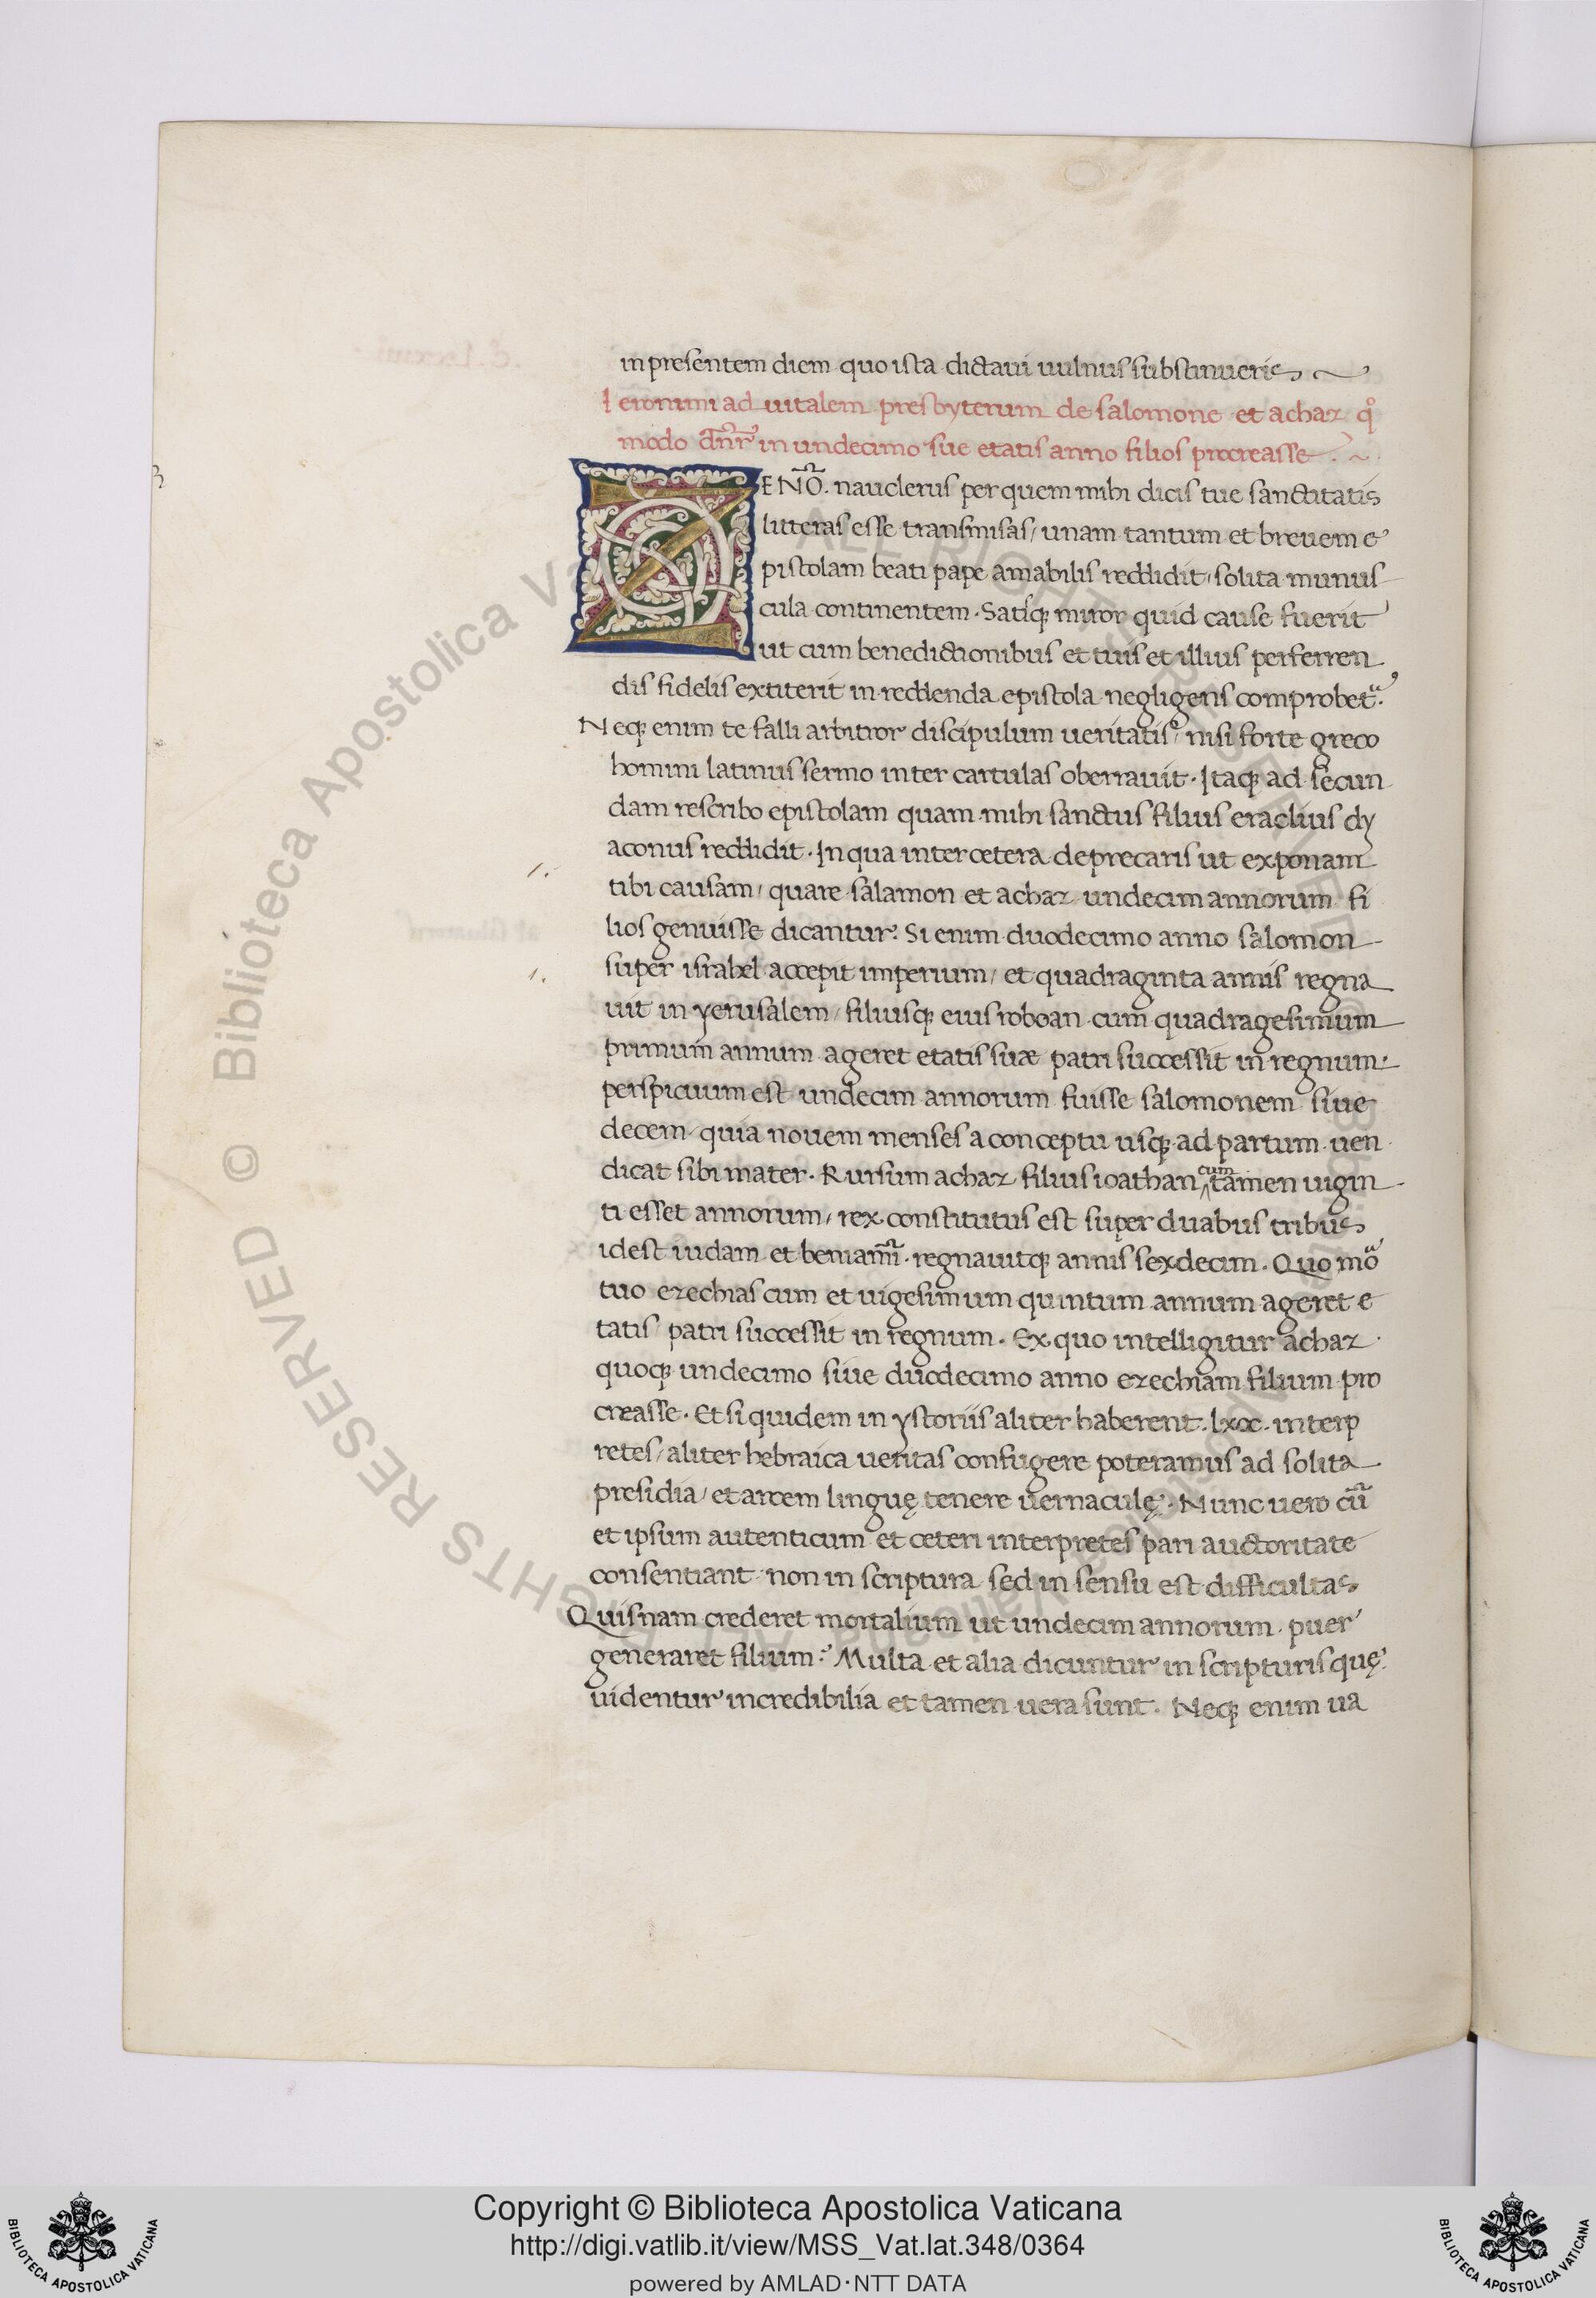 in presentem diem quo ista dictaui uulnus substinueris
Ieronimi ad uitalem presbyterum de salomone et achaz qͦ
modo dn̄r in undecimo sue etatis anno filios procreasse.
ZENO. nauclerus per quem mihi dicis tue sanctitatis
litteras esse transmisas, unam tantum et breuem e
pistolam beati pape amabilis reddidit, solita munus
cula continentem. Satisq; miror quid cause fuerit
ut cum benedictionibus et tuis et illius perferren
dis fidelis extiterit in reddenda epistola negligens comprobet᷑.
Neq; enim te falli arbitror discipulum ueritatis, nisi forte greco
homini latinus sermo inter cartulas oberrauit. Itaq; ad secun
dam rescribo epistolam quam mihi sanctus filius eraclius dy
aconus reddidit. In qua inter cetera deprecaris ut exponam
tibi causam, quare salamon et achaz undecim annorum fi
lios genuisse dicantur. Si enim duodecimo anno salomon
super israhel accepit imperium, et quadraginta annis regna
uit in yerusalem, filiusq; eius roboan cum quadragesimum
primum annum ageret etatis suæ patri successit in regnum.
perspicuum est undecim annorum fuisse salomonem siue
decem quia nouem menses a conceptu usq; ad partum uen
dicat sibi mater. Rursum achaz filius ioathan cum tamen uigin
ti esset annorum, rex constitutus est super duabus tribus
idest iudam et beniamī. regnauitq; annis sexdecim. Quo mõ
tuo ezechias cum et uigesimum quintum annum ageret e
tatis patri successit in regnum. Ex quo intelligitur achaz
quoq; undecimo siue duodecimo anno ezechiam filium pro
creasse. Et si quidem in ystoriis aliter haberent. lxx. interp
retes, aliter hebraica ueritas confugere poteramus ad solita
presidia, et arcem linguę tenere uernaculę. Nunc uero cū
et ipsum autenticum et ceteri interpretes pari auctoritate
consentiant non in scriptura sed in sensu est difficultas
Quisnam crederet mortalium ut undecim annorum puer
generaret filium? Multa et alia dicuntur in scripturis quę
uidentur incredibilia et tamen uera sunt. Neq; enim ua
Copyright © Biblioteca Apostolica Vaticana
http://digi.vatlib.it/view/MSS_Vat.lat.348/0364
powered by AMLAD·NTT DATA